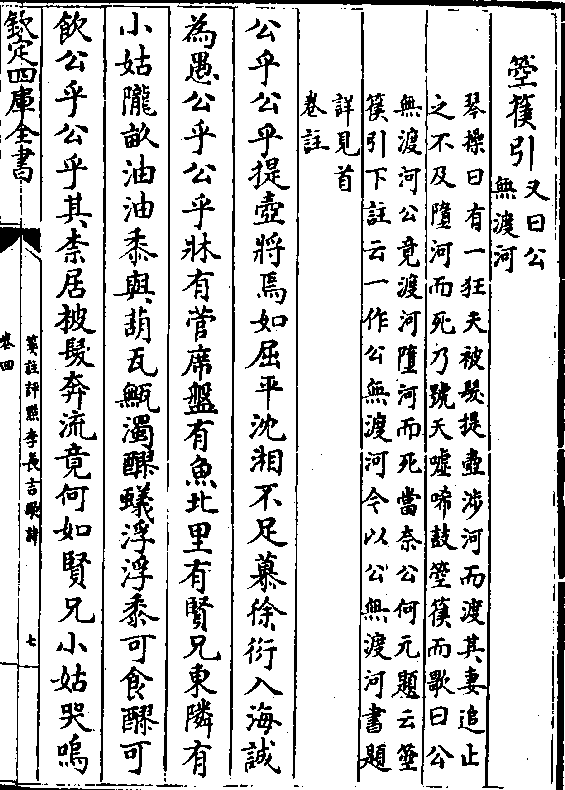 箜篌引又曰公
無渡河
琴操曰有一狂夫被髮提壺涉河而渡其妻追止
之不及墮河而死乃號天噓唏鼓箜篌而歌曰公
無渡河公竟渡河墮河而死當奈公何元題云箜
篌引下註云一作公無渡河今以公無渡河書題
詳見首
卷註
公乎公乎提壺將焉如屈平沈湘不足慕徐衍入海誠
為愚公乎公乎牀有菅席盤有魚北里有賢兄東隣有
小姑隴畝油油黍與葫瓦甒濁醪蟻浮浮黍可食醪可
飲公乎公乎其柰居被髮奔流竟何如賢兄小姑哭嗚
欽定四庫全書
箋註評點李長吉歌詩
卷四
七